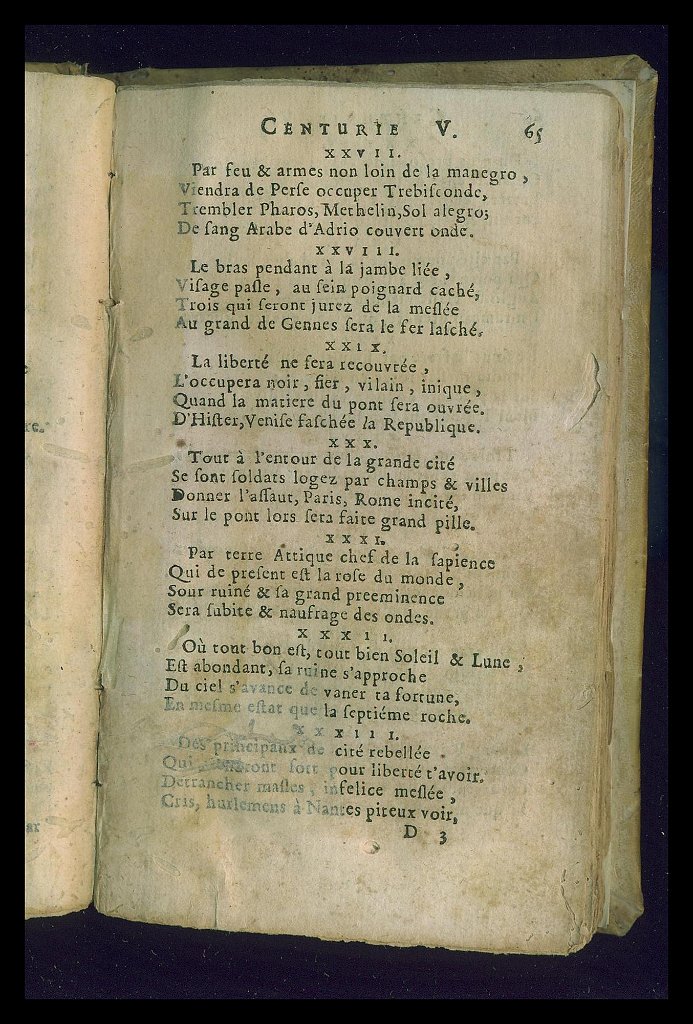 CENTURIE V. 65
XXVII.
Par feu & armes non loin de la manegro,
Viendra de Perse occuper Trebisconde,
Trembler Pharos, Methelin, Sol alegro;
De sang Arabe d'Adrio couvert onde.
XXVIII.
Le bras pendant à la jambe liée,
Visage pasle, au sein poignard caché,
Trois qui seront jurez de la meslée
Au grand de Gennes sera le fer lasché.
XXIX.
La liberté ne sera recouvrée,
L'occupera noir, fier, vilain, inique,
Quand la matiere du pont sera ouvrée.
D'Hister, Venise faschée la Republique.
XXX.
Tout à l'entour de la grande cité
Se sont soldats logez par champs & villes
Donner l'assaut, Paris, Rome incité,
Sur le pont lors sera faite grand pille.
XXXI.
Par terre Attique chef de la sapience
Qui de present est la rose du monde,
Sour ruiné & sa grand preeminence
Sera subite & naufrage des ondes.
XXXII.
Où tout bon est, tout bien Soleil & Lune,
Est abondant, sa ruine s'approche
Du ciel s'avance de vaner ta fortune,
En mesme estat que la septiéme roche.
XXXIII.
Des principaux de cité rebellée
Qui fort pour liberté t'avoir.
Detrancher masles, infelice meslée,
Cris, hurlemens à Nantes piteux voir,
D 3